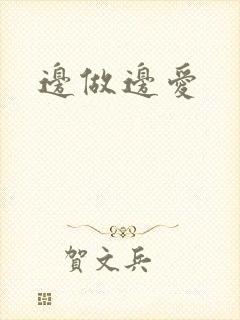 邊做邊愛
賀文兵